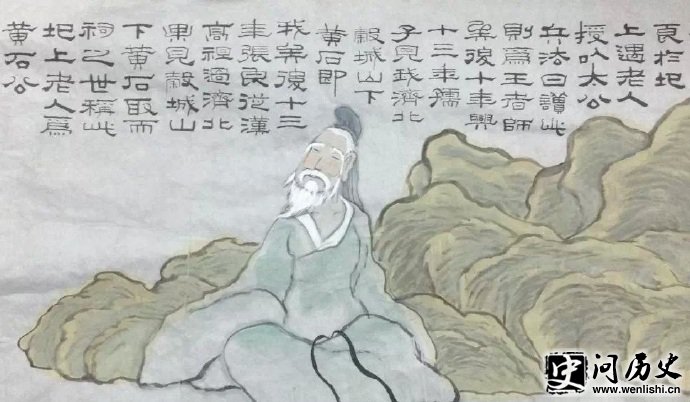 良於圯
上遇老人
授以太公
兵法曰讀此
則為王者師
矣後十年興
十三年孺
子見我濟北
穀城山下
黄石即
我矣後十三
年張良從漢
高祖過濟北
果見穀城山
下黄石取而
祠之世稱此
圯上老人為
黄石公
史 问历史
www.wenlishi.cn